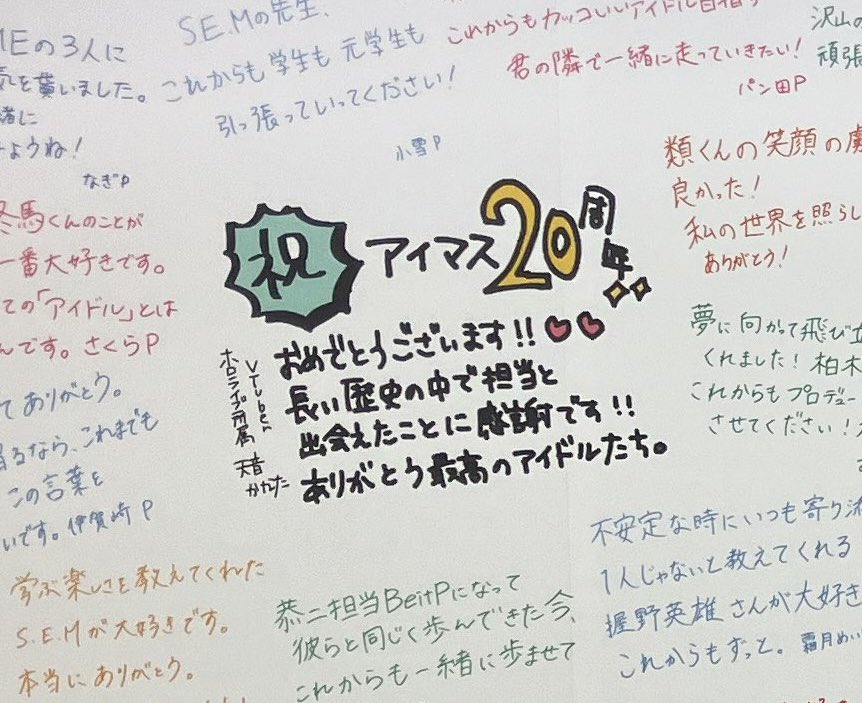 Eの3人に
気を貰いました。
緒に
ようね!
なぎP
S.E.Mの先生、
これからも 学生も 元学生も
引っ張っていってください!
小雪P
これからもカッコいいアイドル目指す
君の隣で一緒に走っていきたい!
パン田P
沢山の
頑張
冬馬くんのことが
一番大好きです。
ての「アイドル」とは
んです。さくらP
祝 アイマス20周年
おめでとうございます!!
長い歴史の中で担当と
出会えたことに感謝です!!
ありがとう最高のアイドルたち。
VTuber
ホロライブ所属 天音かなた
類くんの笑顔の虜
良かった!
私の世界を照らし
ありがとう!
夢に向かって飛び立
くれました! 柏木
これからもプロデュー
させてください!
て ありがとう。
るなら、これまでも
この言葉を
いです。伊賀崎P
学ぶ楽しさを教えてくれた
S.E.Mが大好きです。
本当にありがとう。
恭二担当BeitPになって
彼らと同じく歩んできた今、
これからも一緒に歩ませて
不安定な時にいつも寄り添
1人じゃないと教えてくれる
握野英雄さんが大好き
これからもずっと。霜月めい